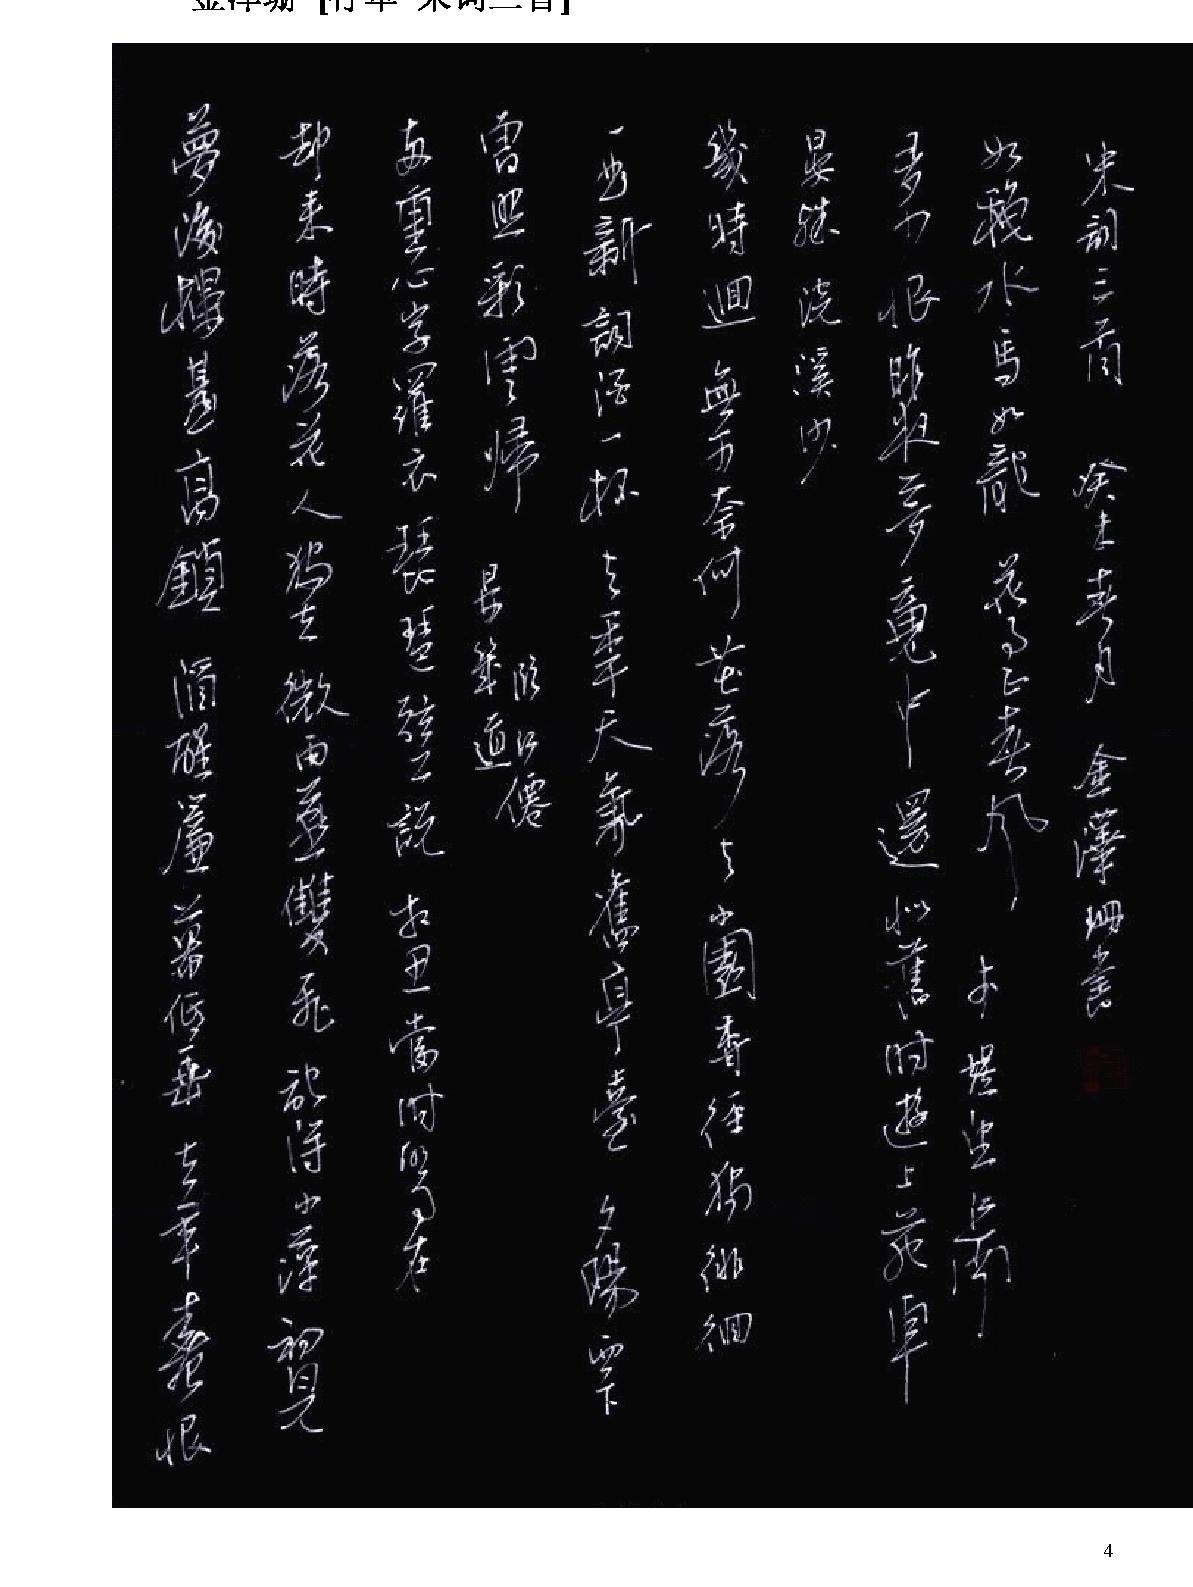 金泽珊 [行草 宋词三首]
夢後樓臺高鎖 酒醒簾幕低垂 去年春恨
却來時落花人獨立 微雨燕雙飛 記得小蘋初見
兩重心字羅衣 琵琶弦上說相思 當時明月在
曾照彩雲歸 晏幾道 臨江僊
一曲新詞酒一杯 去年天氣舊亭臺 夕陽西下
幾時迴 無可奈何花落去 小園香徑獨徘徊
晏殊 浣溪沙
多少恨 昨夜夢魂中 還似舊時遊上苑 車
如流水馬如龍 花月正春風 李煜 望江南
宋詞三首 癸未春月 金澤珊書
4